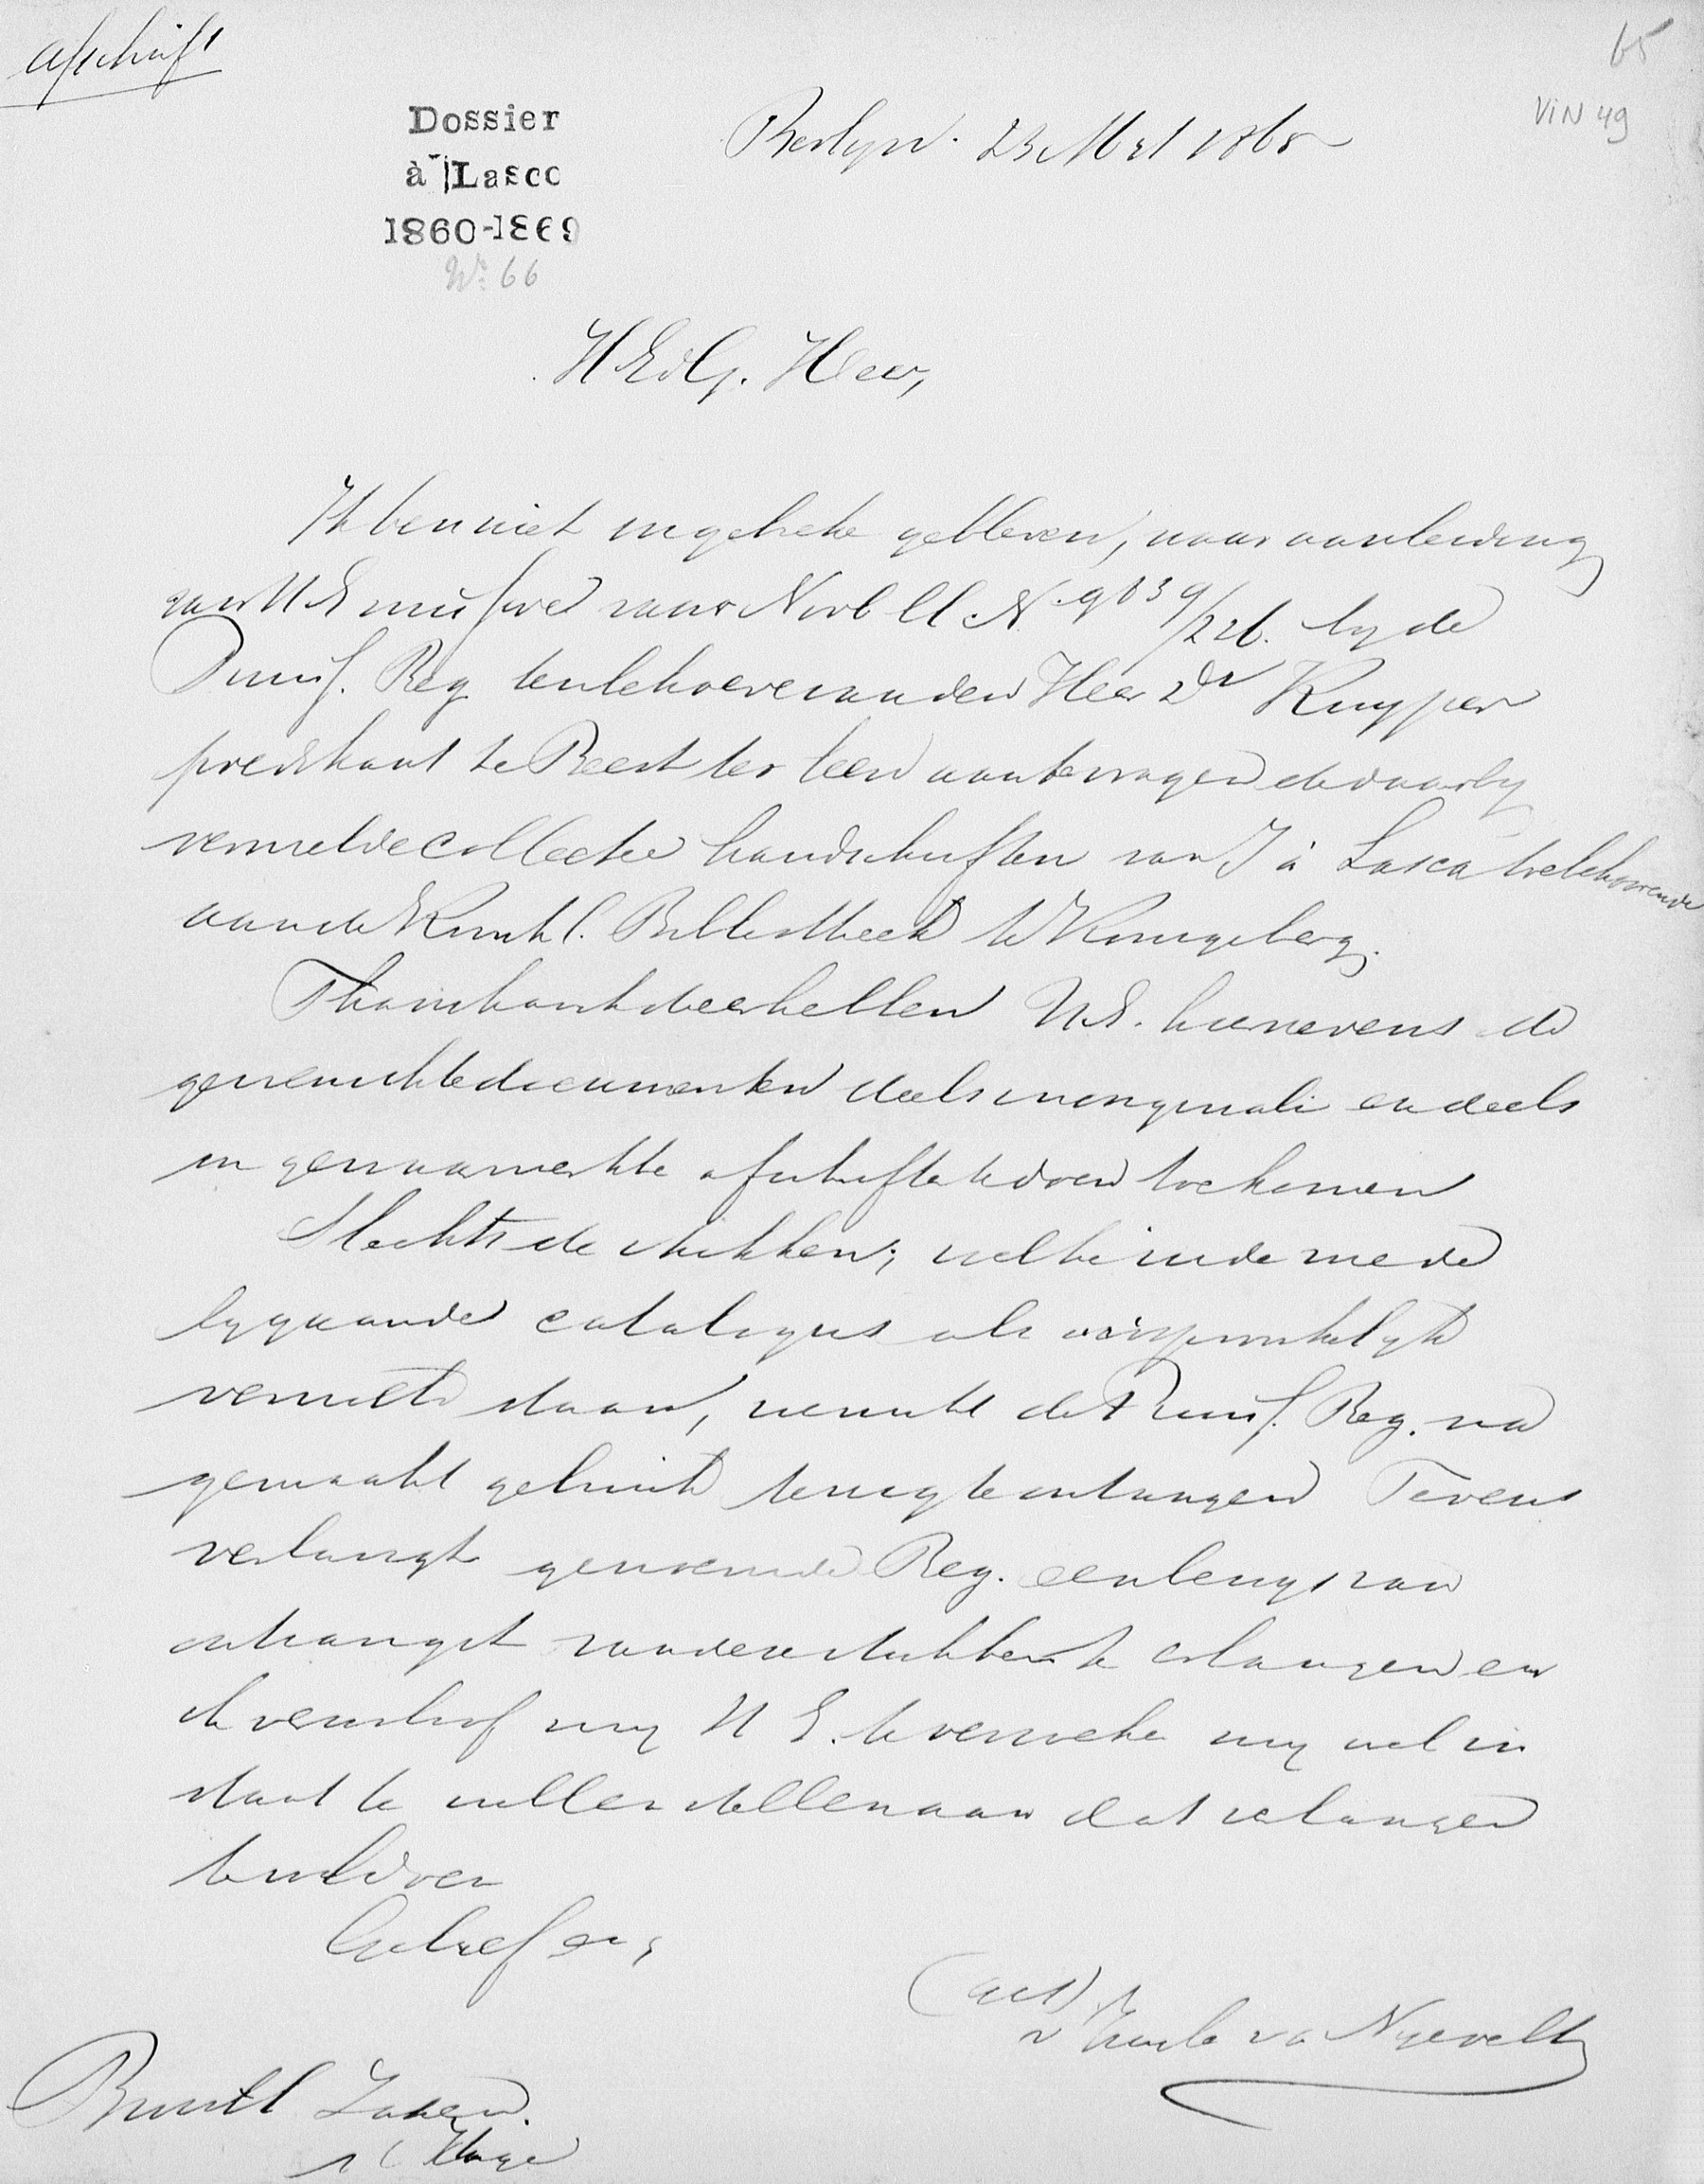 afschrift
65
VIN 49
Dossier
à Lasco
1860-1869
No. 66
Berlyn. 23 Mrt 1865
HEdG. Heer,
Ik ben niet in gebreke gebleven, naar aanleiding
van UE missive van Novb ll N. 9839/226. by de
Pruis. Reg. ten behoeve van den Heer Dr Kuyper
predikant te Beest ter leen aantevragen de daarby
vermelde collectie handschriften van J à Lasco toebehoorende
aan de Konkl. Bibliotheek te Koningsberg.
Thans heb ik de eer hebben UE. hiernevens de
gewenschte documenten deels in originali en deels
in gewaarmerkte afschriften te doen toekomen
Slechts de stukken, welke in de mede
bygaande catalogus als oorspronkelyk
vermeld staan, wenscht de Pruis. Reg. na
gemaakt gebruik terug te ontvangen Tevens
verlangt genoemde Reg. een bewys van
ontvangst van deze stukken te erlangen en
ik veroorloof my UE. te verzoeken my wel in
staat te willen stellen aan dat verlangen
te voldoen
(get)
v Zuyle va Nyevelt
Buitl Zaken.
's Hage